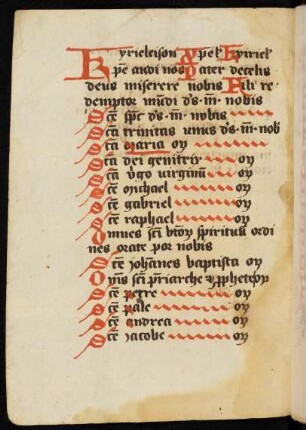 Kyrieleison Xpel Kyriel
Xpe audi nos Pater de celis
deus miserere nobis Fili re
demptor mūdi ds m nobis
Sce spc ds m nobis
Scā trinitas unus ds m nob
Scā maria or
Scā dei genitrix or
Scā vgo virginū or
Sce michael or
Sce gabriel or
Sce raphael or
Omnes sci btor spirituū ordi
nes orate pro nobis
Sce johānes baptista or
Oms sci priarche & pphete or
Sce petre or
Sce pale or
Sce andrea or
Sce jacobe or